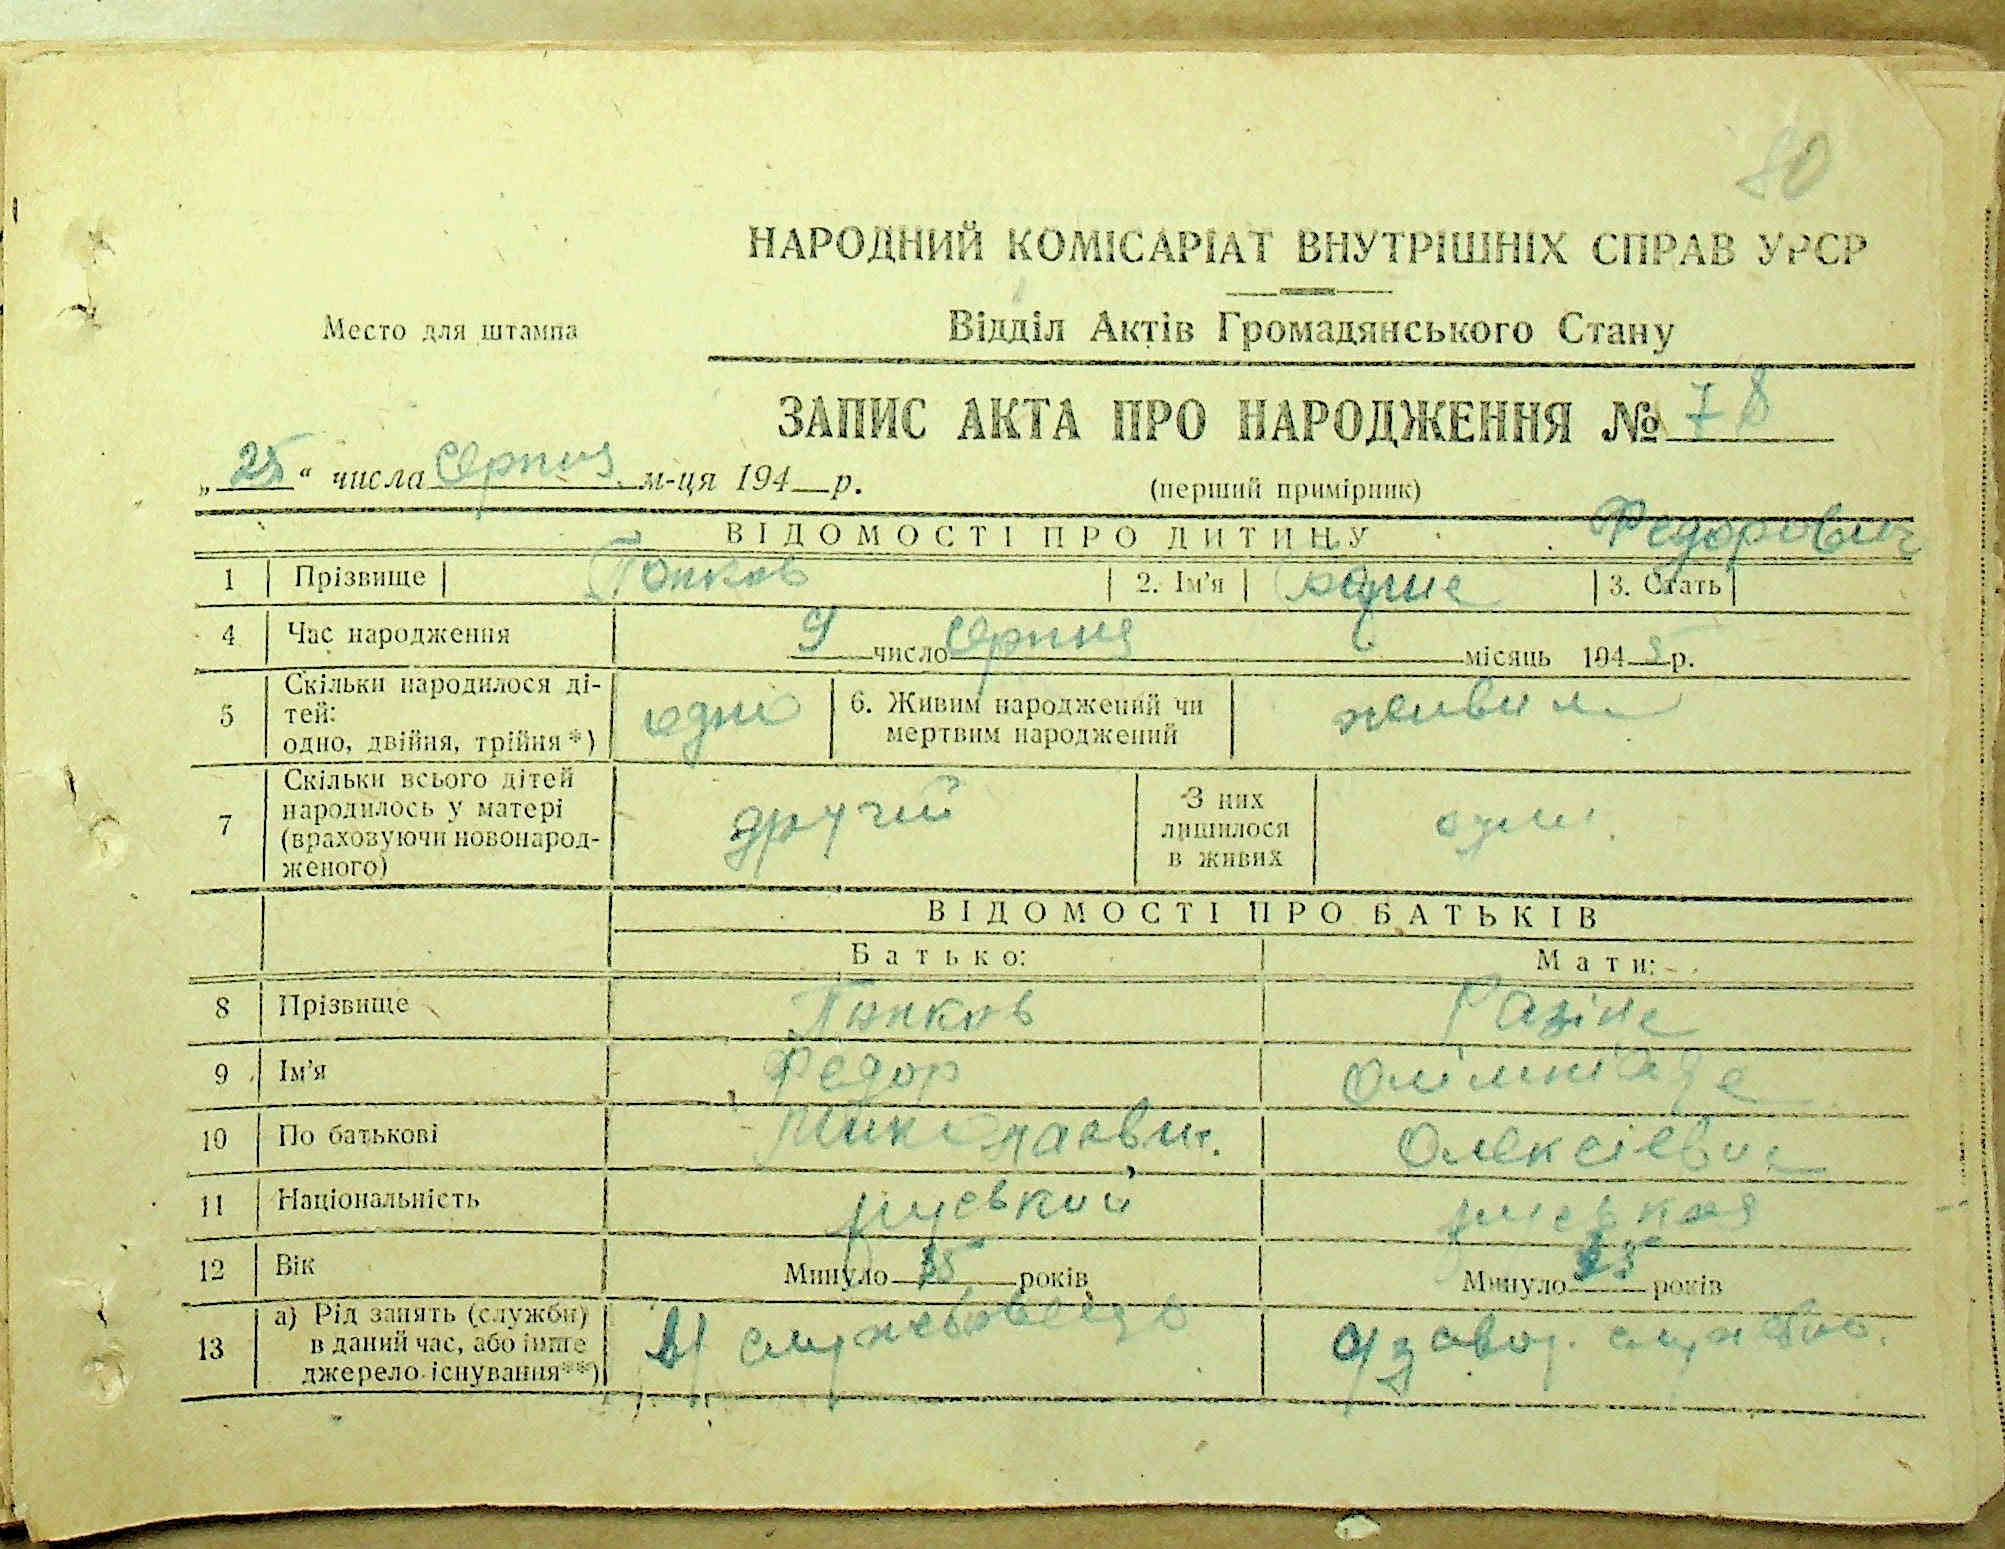 80
НАРОДНИЙ КОМІСАРІАТ ВНУТРІШНІХ СПРАВ УРСР
Место для штампа
Відділ Актів Громадянського Стану
ЗАПИС АКТА ПРО НАРОДЖЕННЯ № 78
„25“ числа серпня м-ця 194 р.
(перший примірник)
ВІДОМОСТІ ПРО ДИТИНУ
Федорович
1 Прізвище Попков 2. Ім'я 3. Стать
4 Час народження 9 число серпня місяць 1945 р.
5 Скільки народилося дітей: одно, двійня, трійня*) одно 6. Живим народжений чи мертвим народжений живим
7 Скільки всього дітей народилось у матері (враховуючи новонародженого) другий З них лишилося в живих
ВІДОМОСТІ ПРО БАТЬКІВ
Батько: Мати:
8 Прізвище Попков Разіна
9 Ім'я Федор Олімпіада
10 По батькові Олексіевна
11 Національність руський руськая
12 Вік Минуло 35 років Минуло років
13 а) Рід занять (служби) в даний час, або інше джерело існування**)